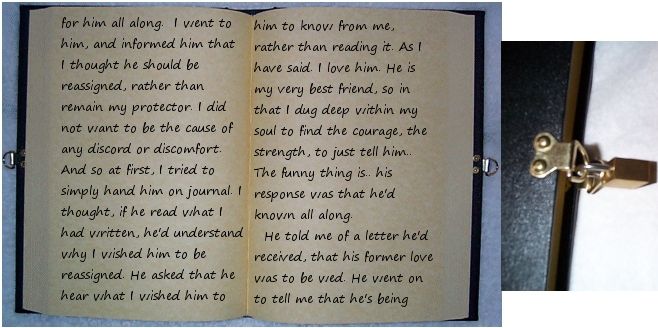 for him all along. I went to
him, and informed him that
I thought he should be
reassigned, rather than
remain my protector. I did
not want to be the cause of
any discord or discomfort.
And so at first, I tried to
simply hand him on journal. I
thought, if he read what I
had written, he'd understand
why I wished him to be
reassigned. He asked that he
hear what I wished him to
him to know from me,
rather than reading it. As I
have said. I love him. He is
my very best friend, so in
that I dug deep within my
soul to find the courage, the
strength, to just tell him..
The funny thing is.. his
response was that he'd
known all along.
He told me of a letter he'd
received, that his former love
was to be wed. He went on
to tell me that he's being